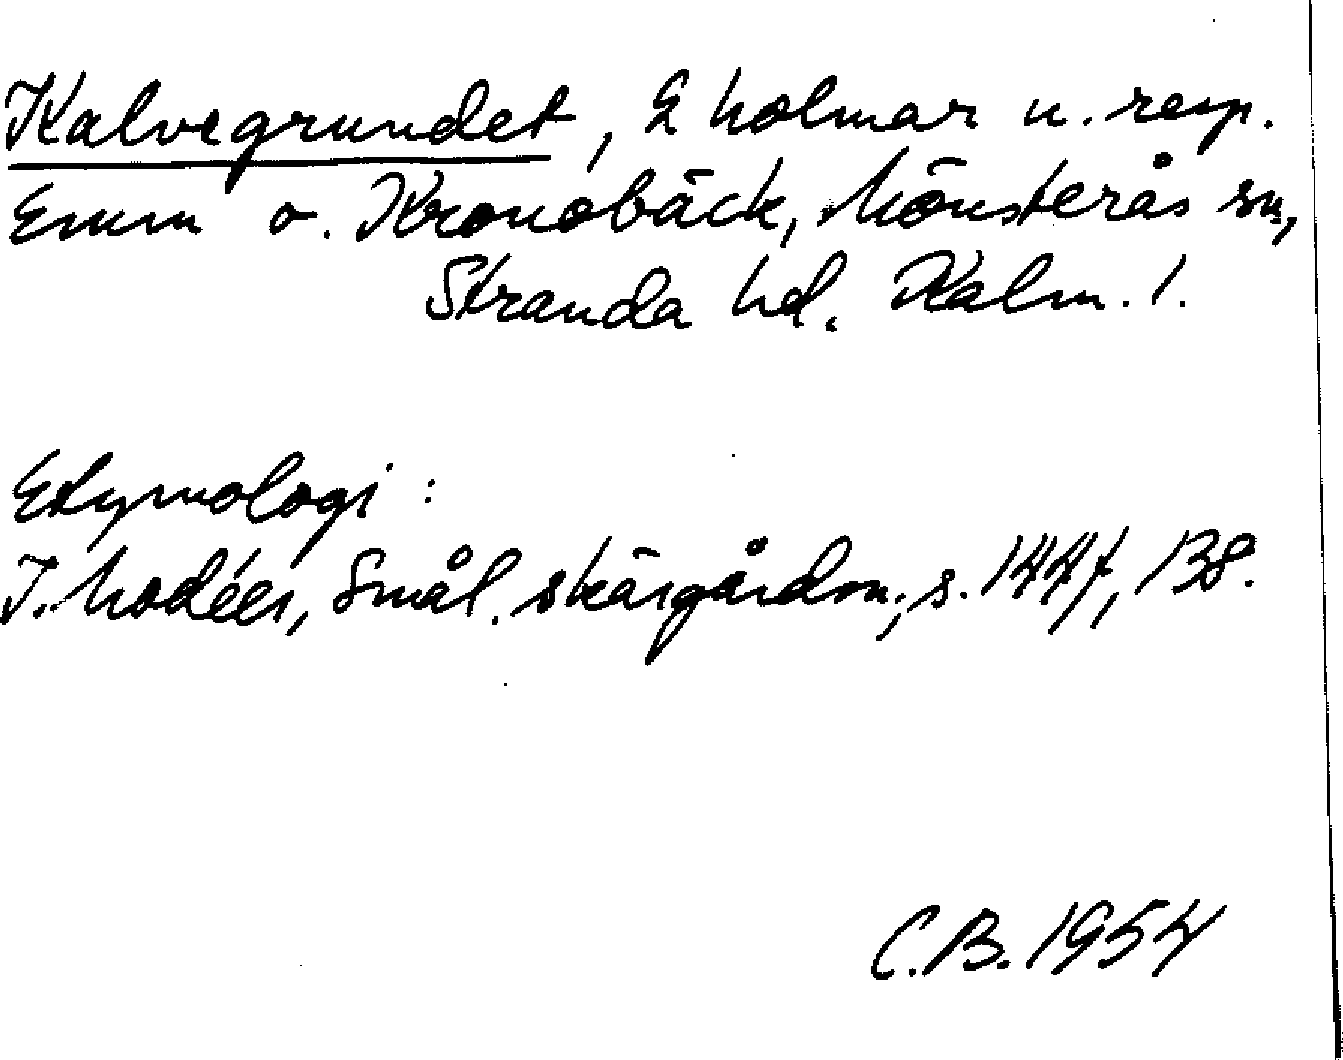 Kalvegrundet, 2 holmar u. resp.
Emm o. Kronobäck, Mönsterås sn,
Stranda hd. Kalm. l.
Etymologi:
I. Modéer, Smål. skärgårdsn., s. 144 f, 138.
C.B. 1954